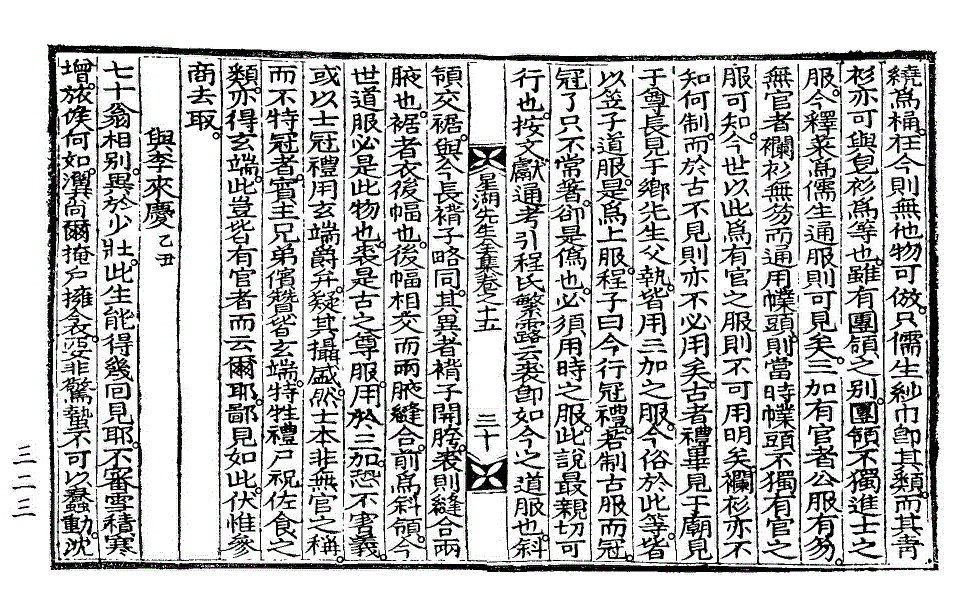 繞爲桶在今則無他物可倣只儒生紗巾卽其類而其靑
衫亦可與皂衫爲等也雖有團領之別團領不獨進士之
服今釋菜爲儒生通服則可見矣三加有官者公服有笏
無官者襴衫無笏而通用幞頭則當時幞頭不獨有官之
服可知今世以此爲有官之服則不可用明矣襴衫亦不
知何制而於古不見則亦不必用矣古者禮畢見于廟見
于尊長見于鄉先生父執皆用三加之服今俗於此等皆
以笠子道服是爲上服程子曰今行冠禮若制古服而冠
冠了只不常著卻是僞也必須用時之服此說最親切可
行也按文獻通考引程氏繁露云裘卽如今之道服也斜
星湖先生全集卷之十五
三十
領交裾與今長褙子略同其異者褙子開胯裘則縫合兩
腋也裾者衣後幅也後幅相交而兩腋縫合前爲斜領今
世道服必是此物也裘是古之尊服用於三加恐不害義
或以士冠禮用玄端爵弁疑其攝盛然士本非無官之稱
而不特冠者賓主兄弟儐贊皆玄端特牲禮尸祝佐食之
類亦得玄端此豈皆有官者而云爾耶鄙見如此伏惟參
商去取
與李來慶 乙丑
七十翁相別異於少壯此生能得幾回見耶不審雪積寒
增旅候何如瀷尙爾掩戶擁衾婜非驚蟄不可以蠢動沈
三二三